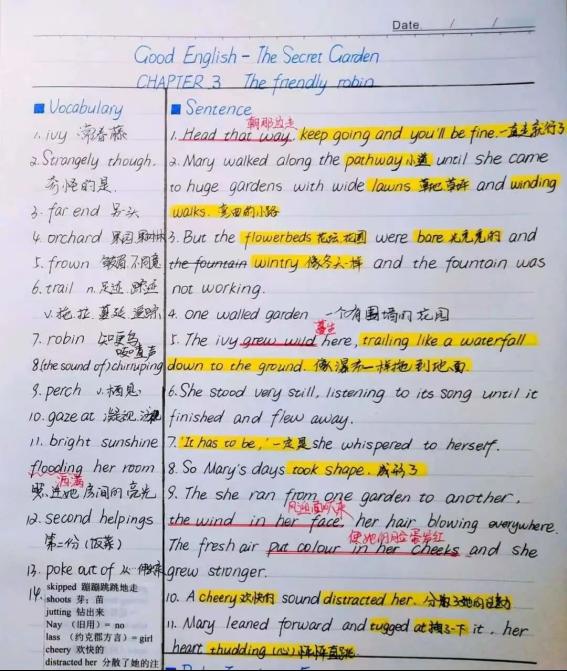 Date / /
Good English - The Secret Garden
CHAPTER 3 The friendly robin
Vocabulary
1. ivy 常春藤
2. Strangely though.
奇怪的是.
3. far end 另一头
4. orchard 果园 果树林
5. frown 皱眉 不同意
6. trail n. 足迹 踪迹
v. 拖拉 蔓延 追踪
7. robin 知更鸟
8. (the sound of) chirruping
9. perch v. 栖息
10. gaze at 凝视
11. bright sunshine
flooding her room
洒满
照进她房间的亮光
12. second helpings
第二份 (饭菜)
13. poke out of 从
14.
skipped 蹦蹦跳跳地走
shoots 芽；苗
jutting 钻出来
Nay （旧用）= no
lass （约克郡方言）= girl
cheery 欢快的
distracted her 分散了她的注
Sentence
朝那边走
1. Head that way, keep going and you'll be fine. 一直走就行了
2. Mary walked along the pathway 小道 until she came
to huge gardens with wide lawns 草地 草坪 and winding
walks. 弯曲的小路
3. But the flowerbeds 花坛 花圃 were bare 光秃秃的 and
the fountain wintry 像冬天一样 and the fountain was
not working.
4. one walled garden 一个有围墙的花园
5. The ivy grew wild here, trailing like a waterfall
down to the ground. 像瀑布一样拖到地面.
6. She stood very still, listening to its song until it
finished and flew away.
7. 'It has to be,' 一定是 she whispered to herself.
8. So Mary's days took shape. 成形了
9. The she ran from one garden to another,
风迎面吹来
the wind in her face, her hair blowing everywhere.
使她的脸蛋发红
The fresh air put colour in her cheeks and she
grew stronger.
10. A cheery 欢快的 sound distracted her. 分散了她的注意力
11. Mary leaned forward and tugged at 拽了一下 it, her
heart thudding (心) 怦怦直跳